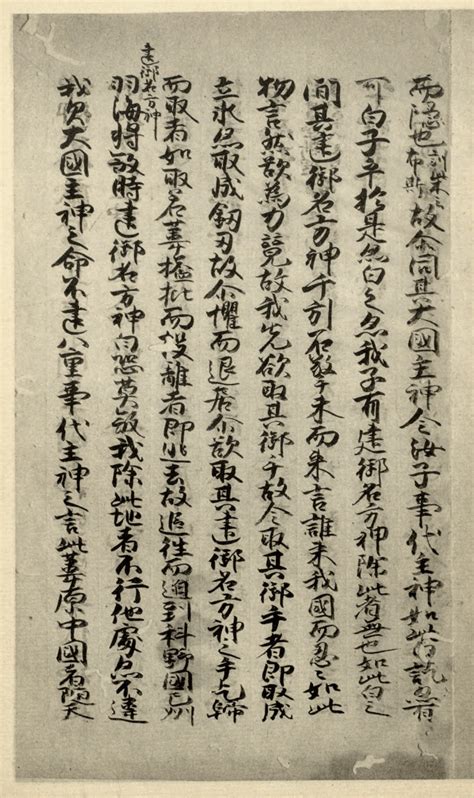 而隱也訓柴云布斯故尒問其大國主神今汝子事代主神如此白訖亦有
可白子乎於是亦白之亦我子有建御名方神除此者無也如此白之
間其建御名方神千引石擎手末而来言誰来我國而忍〻如此
物言然欲為力競故我先欲取其御手故令取其御手者即取成
立氷亦取成釼刃故尒懼而退居尒欲取其建御名方神之手乞歸
而取者如取若葦搤批而投離者即逃去故追往而迫到科野國之州
建御名方神
羽海将殺時建御名方神白恐莫殺我除此地者不行他處亦不違
我父大國主神之命不違八重事代主神之言此葦原中國者随天